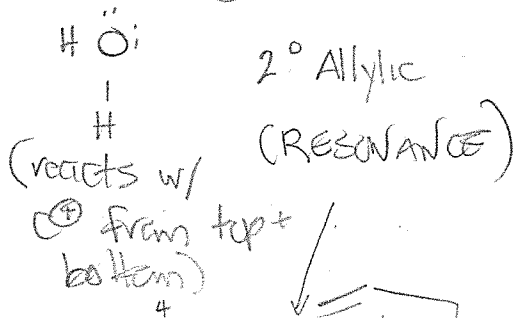 H Ö:
H
(reacts w/
C⊕ from top +
bottom)
4
2° Allylic
(RESONANCE)